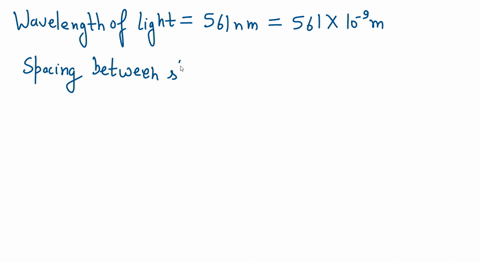 Wavelength of light = 561nm = 561 × 10⁻⁹m
Spacing between s